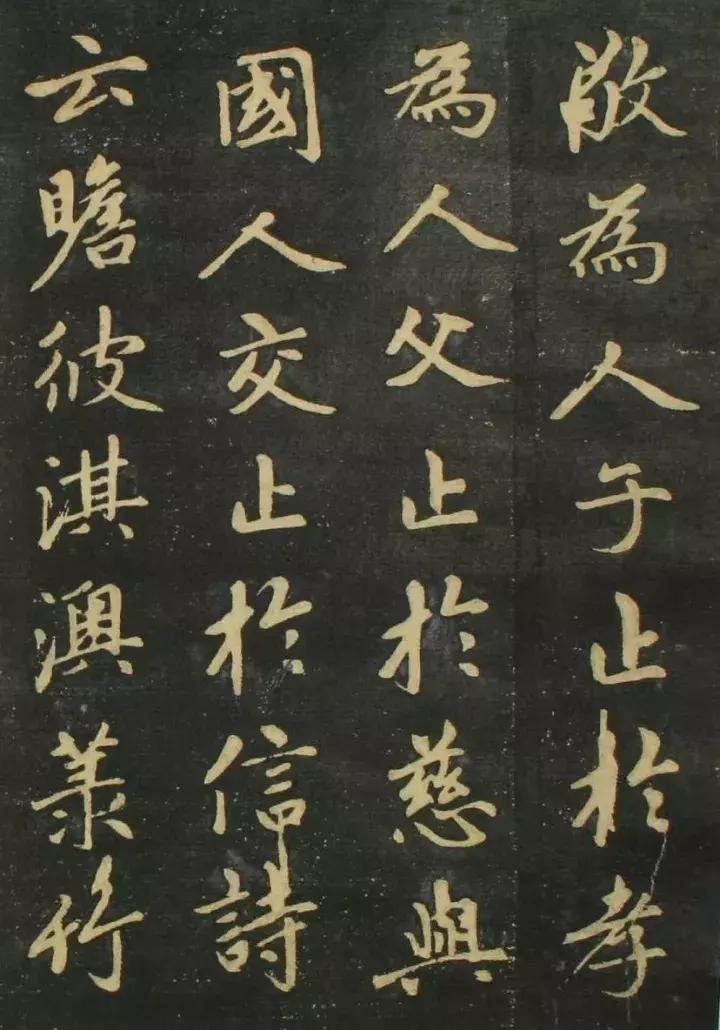 敬為人子止於孝
為人父止於慈與
國人交止於信詩
云瞻彼淇澳菉竹